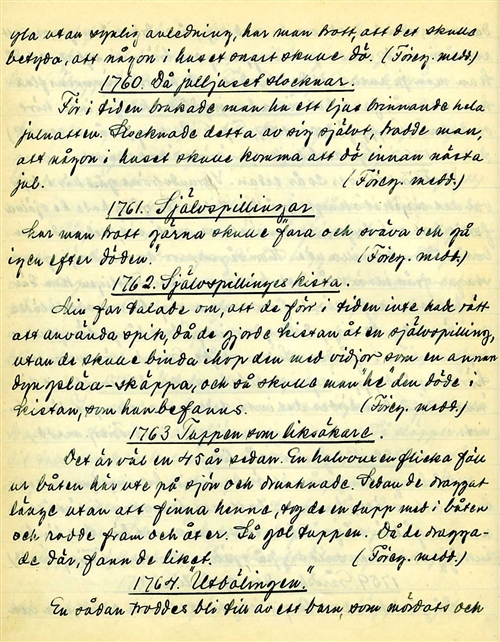 gla utan synlig anledning, har man trott, att det skulle
betyda, att någon i huset snart skulle dö. (Föreg. medd.)
1760. Då julljuset slocknar.
För i tiden brukade man ha ett ljus brinnande hela
julnatten. Slocknade detta av sig självt, trodde man,
att någon i huset skulle komma att dö innan nästa
jul. (Föreg. medd.)
1761. Självspillingar
har man trott gärna skulle "fara och sväva och gå
igen efter döden". (Föreg. medd.)
1762. Självspillinges kista.
Min far talade om, att de förr i tiden inte hade rätt
att använda spik, då de gjorde kistan åt en självspilling,
utan de skulle binda ihop den med vidjor som en annan
skäppa, och så skulle man "he" den döde i
kistan, som han befanns. (Föreg. medd.)
1763 Tuppen som liksökare.
Det är väl en 45 år sedan. En halvvuxen flicka föll
ur båten här ute på sjön och drunknade. Sedan de draggat
länge utan att finna henne, tog de en tupp med i båten
och rodde fram och åter. Så gol tuppen. Då de dragga-
de där, fann de liket. (Föreg. medd.)
1764. "Utbölingen."
En sådan troddes bli till av ett barn, som mördats och